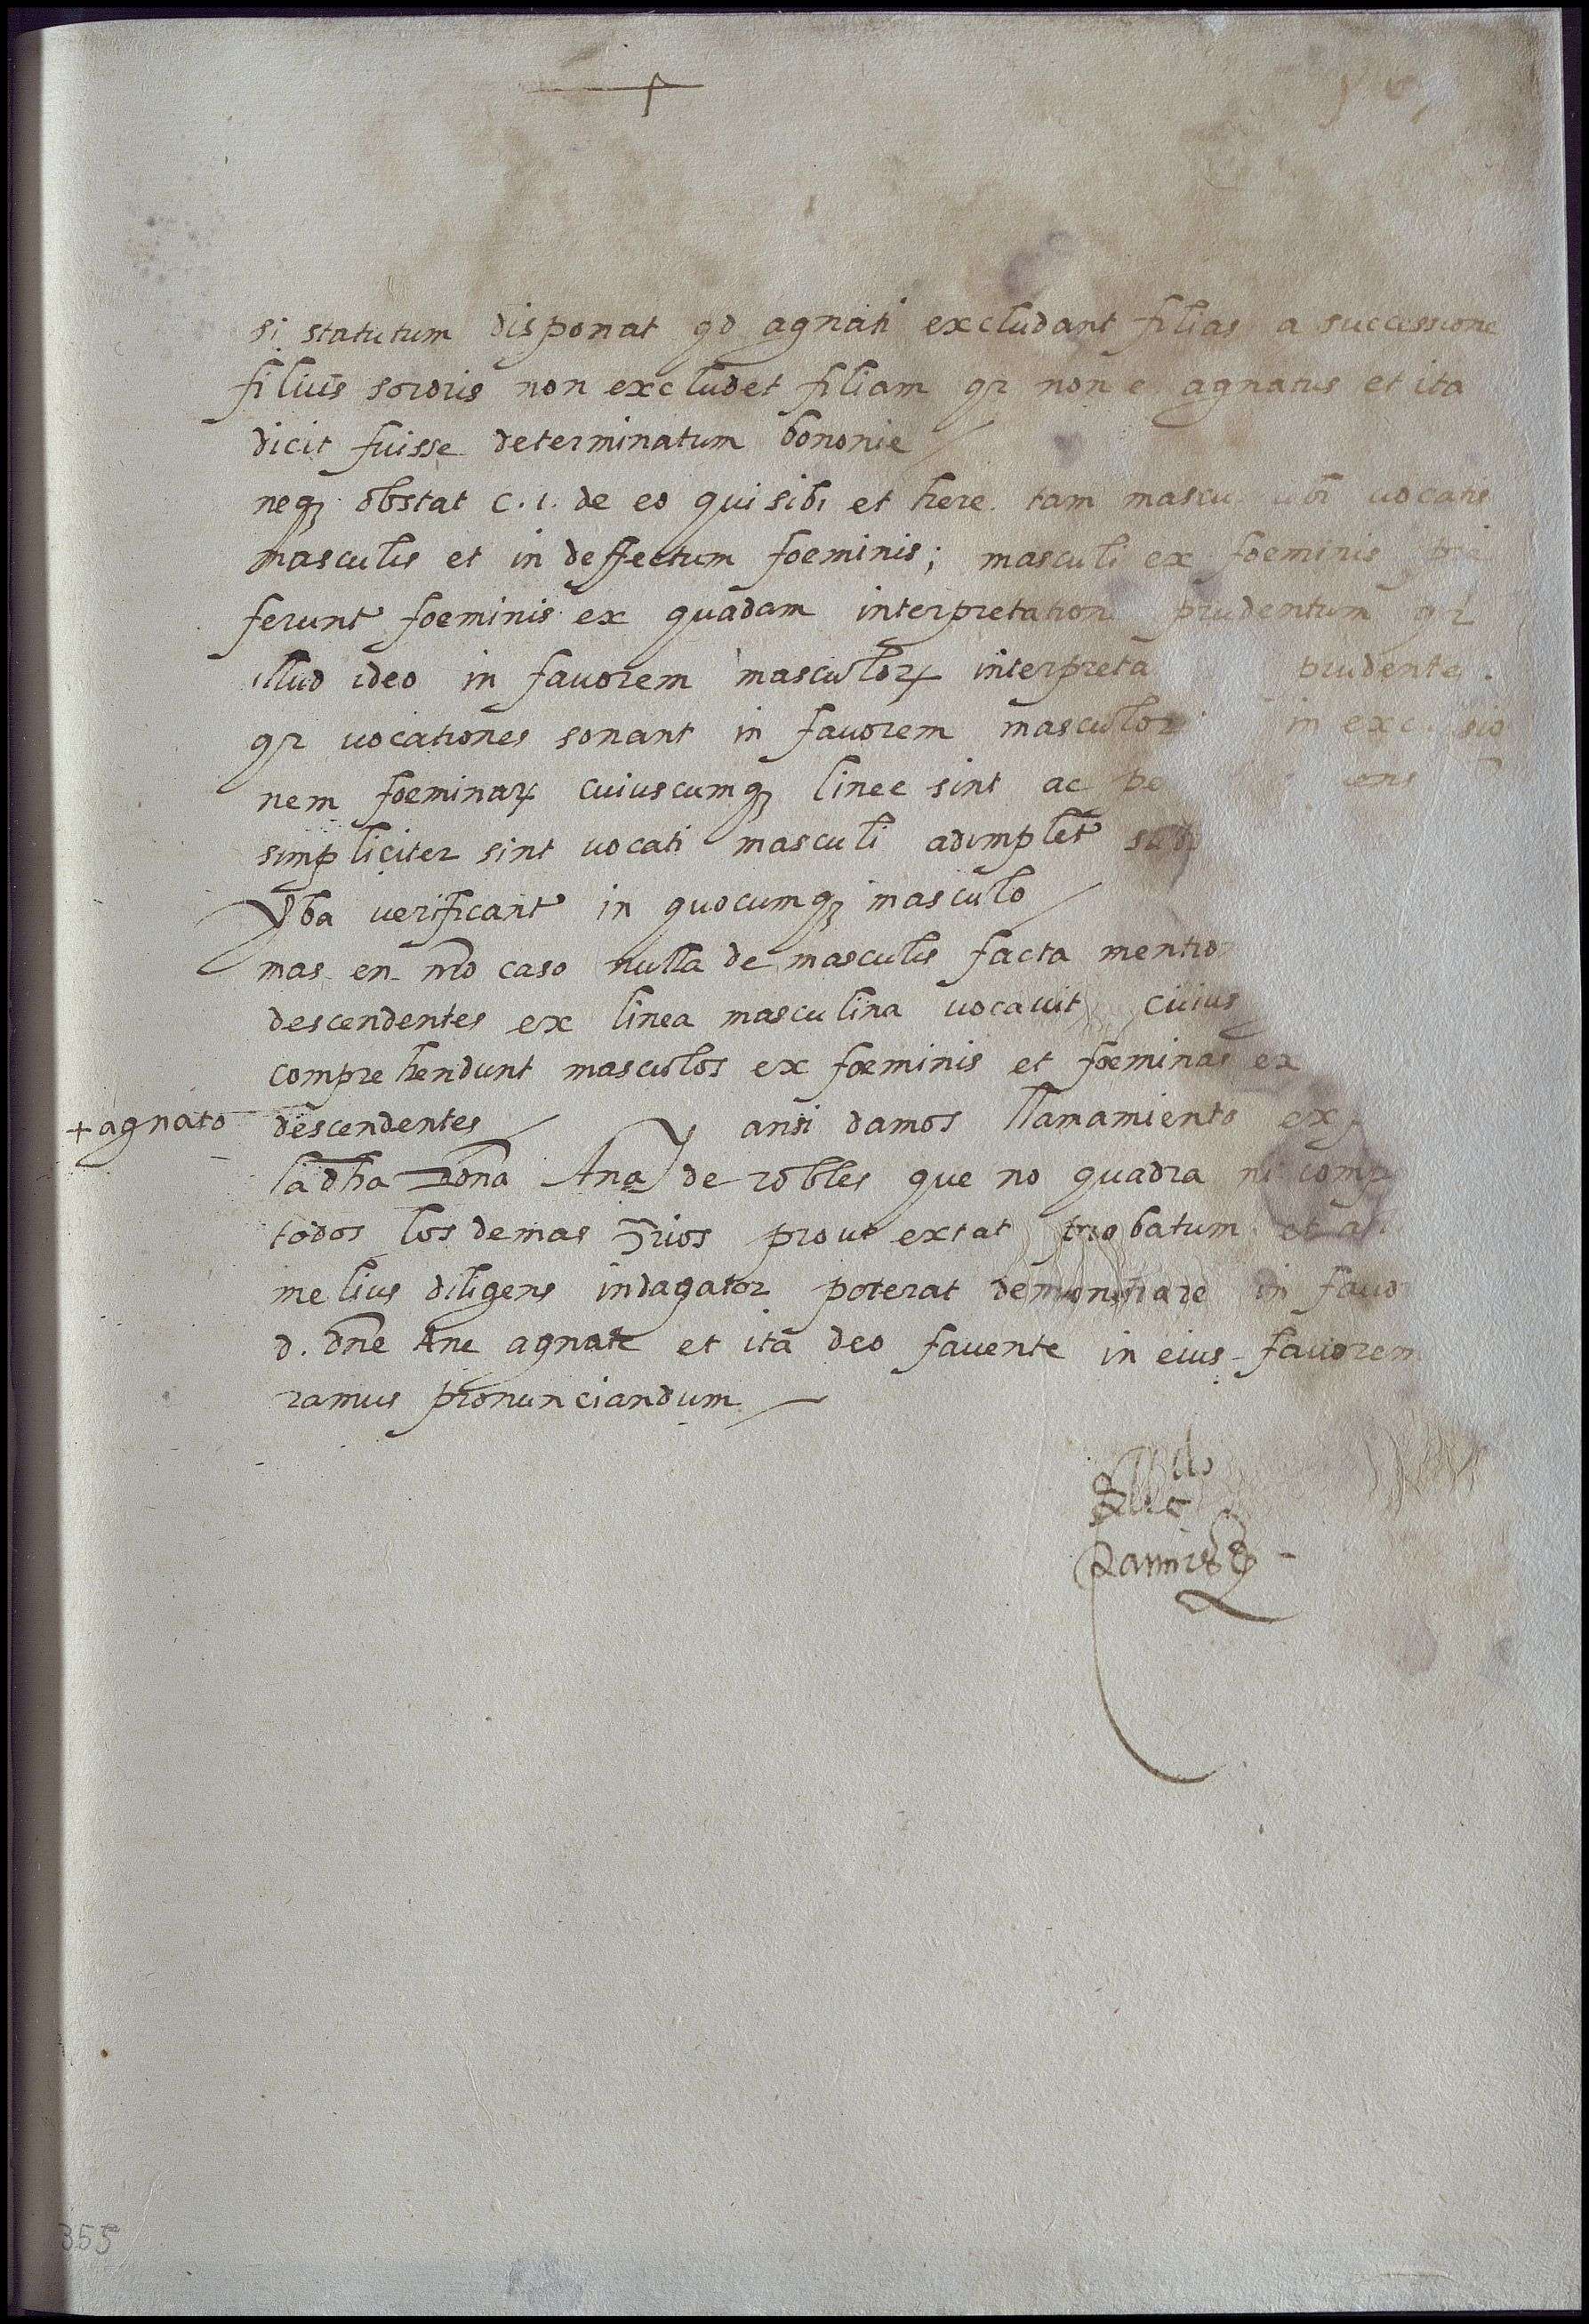 si statutum disponat qd agnati excludant filias a successione
filius sororis non excludet filiam qr non e agnatus et ita
dicit fuisse determinatum bononie
neqȝ obstat c. 1. de eo qui sibi et here. tam mascu ubi uocatis
masculis et in deffectum foeminis; masculi ex foeminis pre
ferunt foeminis ex quadam interpretation prudentum qr
illud ideo in fauorem masculorꝝ interpreta prudentes.
qr uocationes sonant in fauorem masculor in exc sio
nem foeminaꝝ cuiuscumqȝ linee sint ac pe ens
simpliciter sint uocati masculi adimplet
Vba verificant in quocumqȝ masculo
mas en nro caso nulla de masculis facta mention
descendentes ex linea masculina uocauit cuius
comprehendunt masculos ex foeminis et foeminas ex
+ agnato descendentes / Y ansi damos llamamiento ex
la dha Doña Ana de robles que no quadra ni comp
todos los demas prout extat probatum et
melius diligens indagator poterat demonstrare in fauo
d. dne Ane agnate et ita deo fauente in eius fauorem
ramus pronunciandum
Ramirez
355